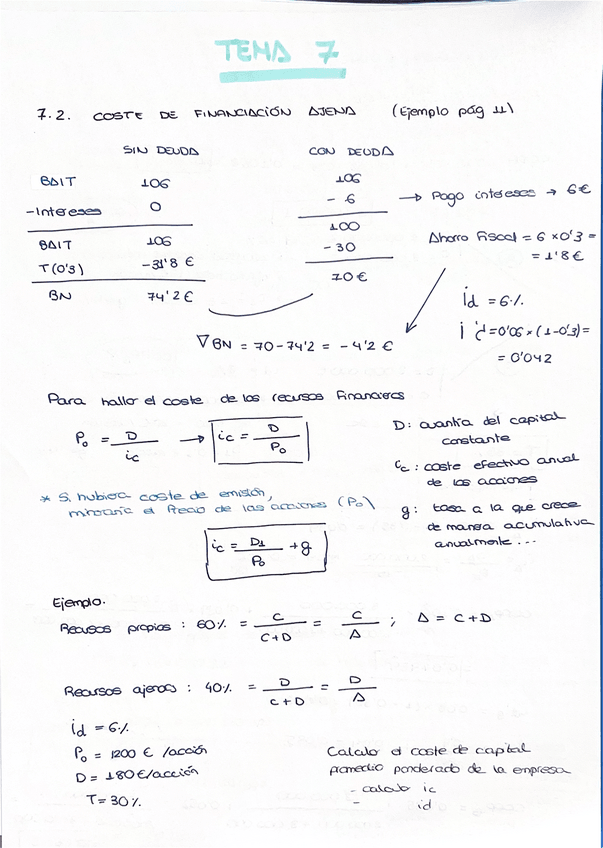 TEMA 7
7.2. COSTE DE FINANCIACIÓN AJENA (Ejemplo pág 11)
SIN DEUDA CON DEUDA
BAIT 106 106
-Intereses 0 - 6 → Pago intereses → 6€
BAIT 106 100
T(0'3) -31'8 € - 30
BN 74'2 € 70 €
Ahorro Fiscal = 6 x 0'3 =
= 1'8 €
id = 6%
i'd = 0'06 x (1-0'3) =
= 0'042
∇ BN = 70 - 74'2 = - 4'2 €
Para hallar el coste de los recursos financieros
P₀ = D / ic → ic = D / P₀
D: cuantía del capital
constante
ic: coste efectivo anual
de las acciones
g: tasa a la que crece
de manera acumulativa
anualmente...
* Si hubiera coste de emisión,
minoraría el Precio de las acciones (P₀)
ic = D1 / P₀ + g
Ejemplo.
Recursos propios : 60% = C / C+D = C / A ; A = C + D
Recursos ajenos : 40% = D / C+D = D / A
id = 6%
P₀ = 1200 € /acción
D = 180€/acción
T = 30%
Calcula el coste de capital
promedio ponderado de la empresa
- calculo ic
- id